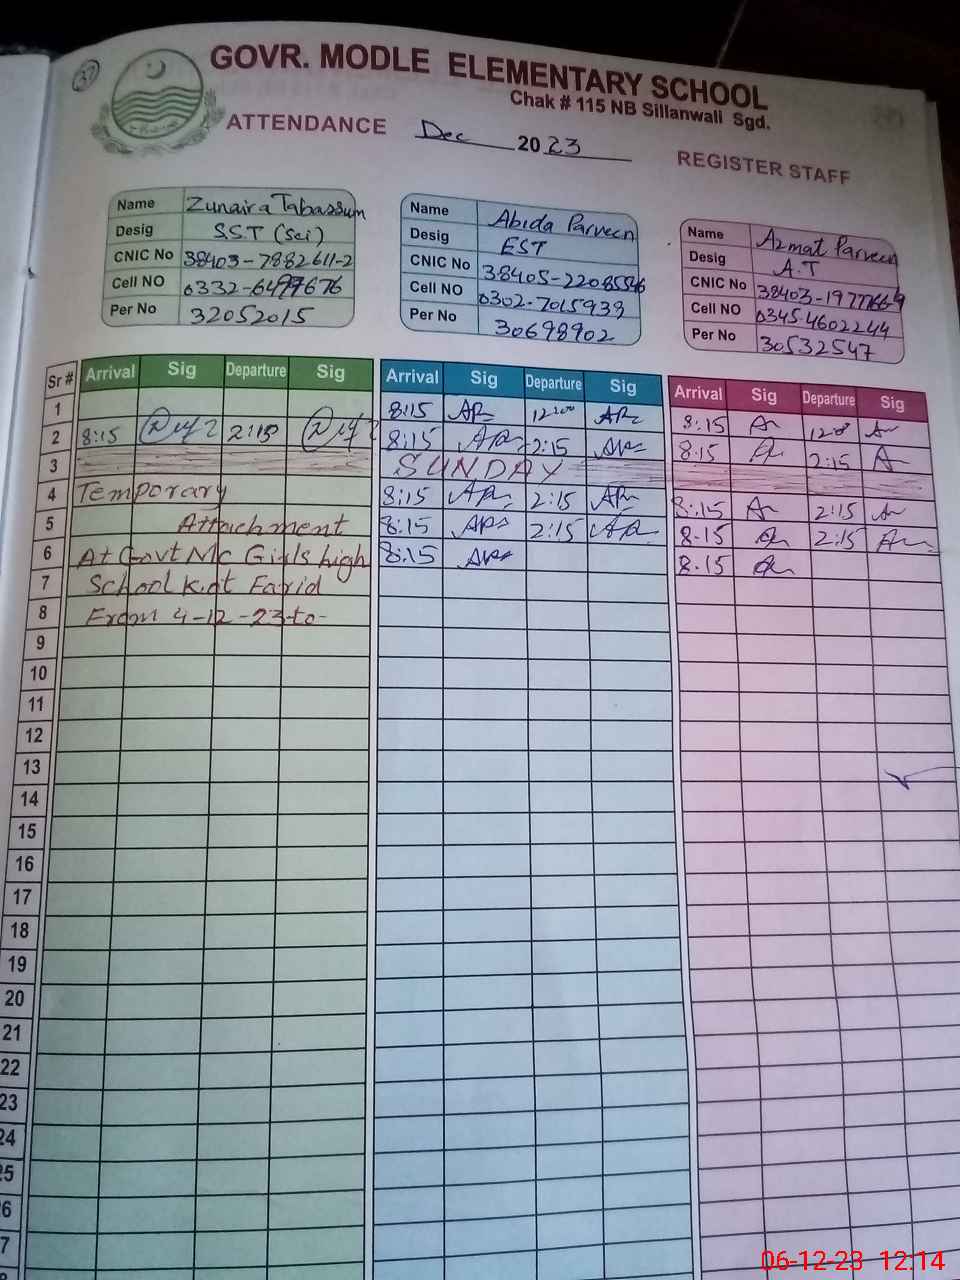 37
GOVR. MODLE ELEMENTARY SCHOOL
Chak # 115 NB Sillanwali Sgd.
ATTENDANCE Dec 2023
REGISTER STAFF
Name Zunaira Tabassum
Desig S.S.T (Sci)
CNIC No 38403-7882611-2
Cell NO 0332-6499676
Per No 32052015
Name Abida Parveen
Desig EST
CNIC No 38405-2208556
Cell NO 0302-7015939
Per No 30698902
Name Azmat Parveen
Desig A.T
CNIC No 38403-1977666-9
Cell NO 0345-4602244
Per No 30532547
Sr # Arrival Sig Departure Sig Arrival Sig Departure Sig Arrival Sig Departure Sig
1 8:15 12:00 8:15 12:00
2 8:15 2:15 8:15 2:15 8:15 2:15
3 SUNDAY
4 Temporary 8:15 2:15 8:15 2:15
5 Attachment 8:15 2:15 8.15 2:15
6 At Govt Mc Girls high 8:15 8.15
7 School Kot Farid
8 From 4-12-23-to-
9
10
11
12
13
14
15
16
17
18
19
20
21
22
23
24
25
26
27
06-12-23 12:14